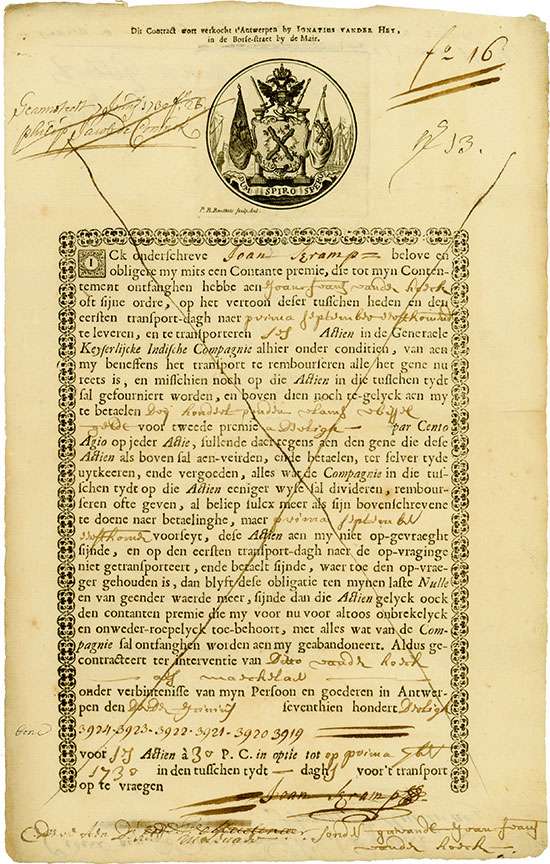 Dit Contract wort verkocht t'Antwerpen by Ignatius vander Hey,
in de Borse-straet by de Mair.
fo 16
No 13.
DUM SPIRO SPERO
sculp. Ant.
ICk onderschreve Joan Kramp belove en
obligere my mits een Contante premie, die tot myn Conten-
tement ontfanghen hebbe aen vander hoeck
oft sijne ordre, op het vertoon deser tusschen heden en den
eersten transport-dagh naer prima september
te leveren, en te transporteren ses Actien in de Generaele
Keyserlijcke Indische Compagnie alhier onder conditien, van aen
my beneffens het transport te rembourseren alle het gene nu
reets is, en misschien noch op die Actien in die tusschen tydt
sal gefourniert worden, en boven dien noch te-gelyck aen my
te betaelen Dry hondert ponden vlams wissel
geldt voor tweede premie a Dertigh par Cento
Agio op jeder Actie, sullende daer tegens aen den gene die dese
Actien als boven sal aen-veirden, ende betaelen, ter selver tyde
uytkeeren, ende vergoeden, alles wat de Compagnie in die tus-
schen tydt op die Actien eeniger wyse sal divideren, rembour-
seren ofte geven, al beliep sulcx meer als sijn bovenschrevene
te doene naer betaelinghe, maer prima september
voorseyt, dese Actien aen my niet op-gevraeght
sijnde, en op den eersten transport-dagh naer de op-vraginge
niet getransporteert, ende betaelt sijnde, waer toe den op-vrae-
ger gehouden is, dan blyft dese obligatie ten mynen laste Nulle
en van geender waerde meer, sijnde dan die Actien gelyck oock
den contanten premie die my voor nu voor altoos onbrekelyck
en onweder-roepelyck toe-behoort, met alles wat van de Com-
pagnie sal ontfanghen worden aen my geabandoneert. Aldus ge-
contracteert ter interventie van vander hoeck
als maeckelaer
onder verbintenisse van myn Persoon en goederen in Antwer-
pen den seventhien hondert Dertigh
3924-3923-3922-3921-3920 3919
voor ses Actien à 30 P. C. in optie tot op prima 7ber
1730 in den tusschen tydt — dagh voor't transport
op te vraegen
Joan Kramp
vander hoeck